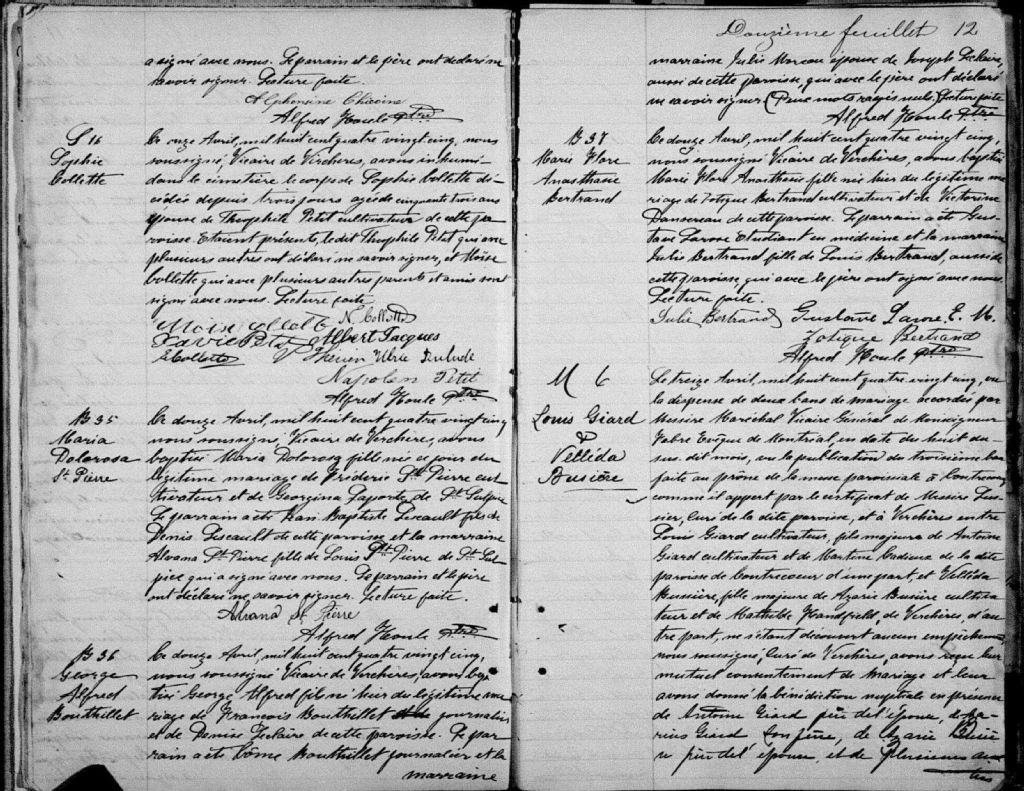 a signé avec nous. Le parrain et le père ont déclaré ne
savoir signer. Lecture faite.
Alphonsine Chicoine
Alfred Houle ptre
S 16
Sophie
Collette
Ce onze Avril, mil huit cent quatre vingt cinq, nous
soussigné, Vicaire de Verchères, avons inhumé
dans le cimetière le corps de Sophie Collette dé-
cédée depuis trois jours agée de cinquante trois ans
épouse de Théophile Petit cultivateur de cette pa-
roisse. Etaient présents, le dit Théophile Petit qui avec
plusieurs autres ont déclaré ne savoir signer, et Moïse
Collette qui avec plusieurs autres parents et amis ont
signé avec nous. Lecture faite
Moise Collette N. Collette
Xavier Petit Albert Jacques
E Collette Ulric
Napoléon Petit
Alfred Houle ptre
B 35
Maria
Dolorosa
St Pierre
Ce douze Avril, mil huit cent quatre vingt cinq
nous soussigné, Vicaire de Verchères, avons
baptisé Maria Dolorosa fille née ce jour du
légitime mariage de Fréderic St Pierre cul-
tivateur et de Georgina Laporte de St Sulpice
Le parrain a été Jean Baptiste Lescault fils de
Denis Lescault de cette paroisse et la marraine
Alvana St Pierre fille de Louis St Pierre de St Sul-
pice qui a signé avec nous. Le parrain et le père
ont déclaré ne savoir signer. Lecture faite.
Alvana St Pierre
Alfred Houle ptre
B 36
George
Alfred
Bouthillet
Ce douze Avril, mil huit cent quatre vingt cinq,
nous soussigné Vicaire de Verchères, avons bap-
tisé George Alfred fils né hier du légitime ma-
riage de François Bouthillet journalier
et de Denise Leclaire de cette paroisse. Le par-
rain a été Côme Bouthillet journalier et la
marraine
Douzième feuillet 12
marraine Julie Moreau épouse de Joseph Leclaire,
aussi de cette paroisse, qui avec le père ont déclaré
ne savoir signer (Deux mots rayés nuls.) Lecture faite
Alfred Houle ptre
B 37
Marie Flore
Anasthasie
Bertrand
Ce douze Avril, mil huit cent quatre vingt cinq,
nous soussigné Vicaire de Verchères, avons baptisé
Marie Flore Anasthasie fille née hier du légitime ma-
riage de Zotique Bertrand cultivateur et de Victorine
Dansereau de cette paroisse. Le parrain a été Gus-
tave Larose Etudiant en médecine et la marraine
Julie Bertrand fille de Louis Bertrand, aussi de
cette paroisse, qui avec le père ont signé avec nous.
Lecture faite.
Julie Bertrand Gustave Larose E. M.
Zotique Bertrand
Alfred Houle ptre
M 6
Louis Giard
&
Velléda
Busière
Le treize Avril, mil huit cent quatre vingt cinq, vu
la dispense de deux bans de mariage accordée par
Messire Maréchal Vicaire Général de Monseigneur
Fabre Evêque de Montréal, en date du huit du-
sus. dit mois, vu la publication du troisième ban
faite au prône de la messe paroissiale à Contrecoeur
comme il appert par le certificat de Messire Lus-
sier, Curé de la dite paroisse, et à Verchères entre
Louis Giard cultivateur, fils majeur de Antoine
Giard cultivateur et de Martine Cadieux de la dite
paroisse de Contrecoeur d'une part, et Velléda
Bussière, fille majeure de Azarie Busière cultiva-
teur et de Mathilde Handfield, de Verchères, d'au-
tre part, ne s'étant découvert aucun empêchement
nous soussigné, Curé de Verchères, avons reçu leur
mutuel consentement de mariage et leur
avons donné la bénédiction nuptiale en présence
de Antoine Giard père de l'époux,
Giard son frère, de Azarie Busiè
re père de l'épouse, et de plusieurs au-
tres